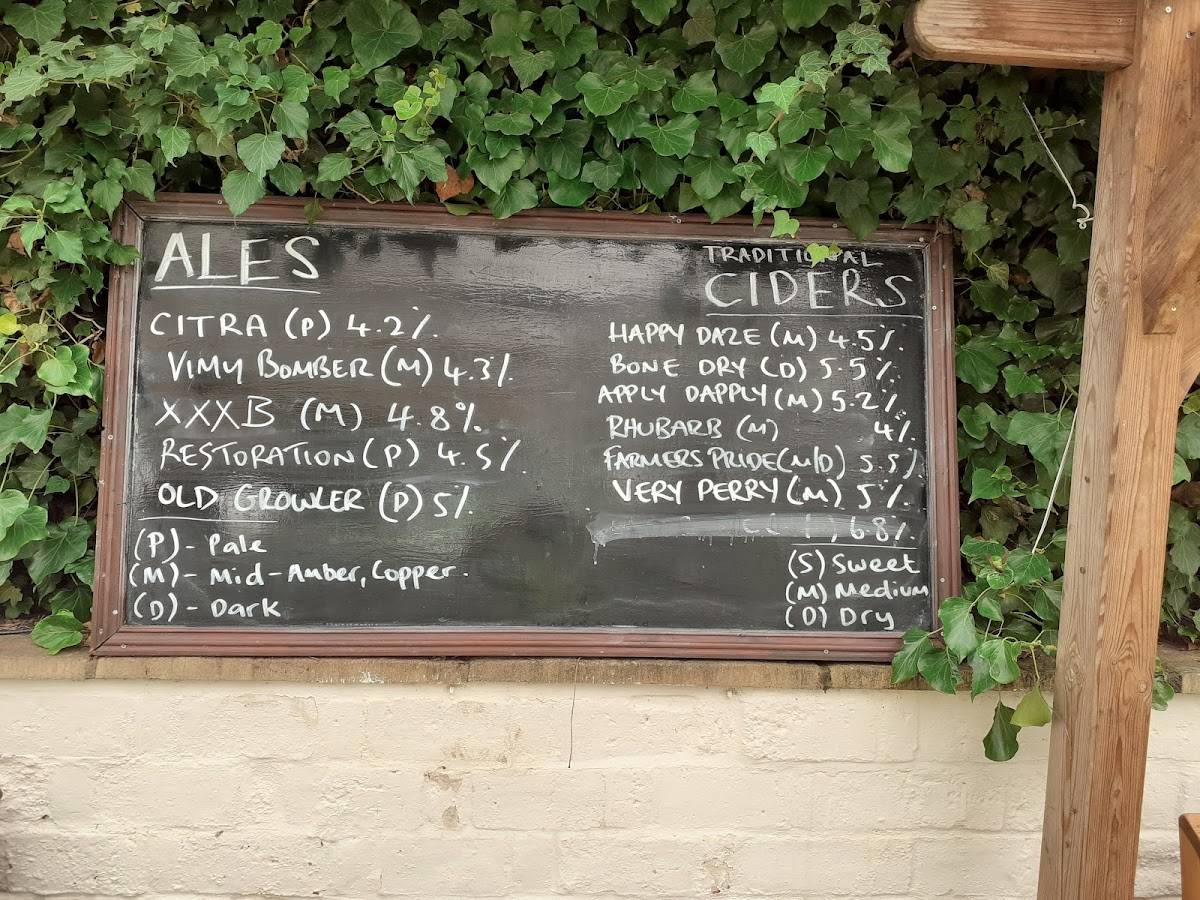 ALES
CITRA (P) 4.2%
VIMY BOMBER (M) 4.3%
XXXB (M) 4.8%
RESTORATION (P) 4.5%
OLD GROWLER (D) 5%
(P) - Pale
(M) - Mid-Amber, Copper.
(D) - Dark
TRADITIONAL
CIDERS
HAPPY DAZE (M) 4.5%
BONE DRY (D) 5.5%
APPLY DAPPLY (M) 5.2%
RHUBARB (M) 4%
FARMERS PRIDE (M/D) 5.5%
VERY PERRY (M) 5%
6.8%
(S) Sweet
(M) Medium
(D) Dry